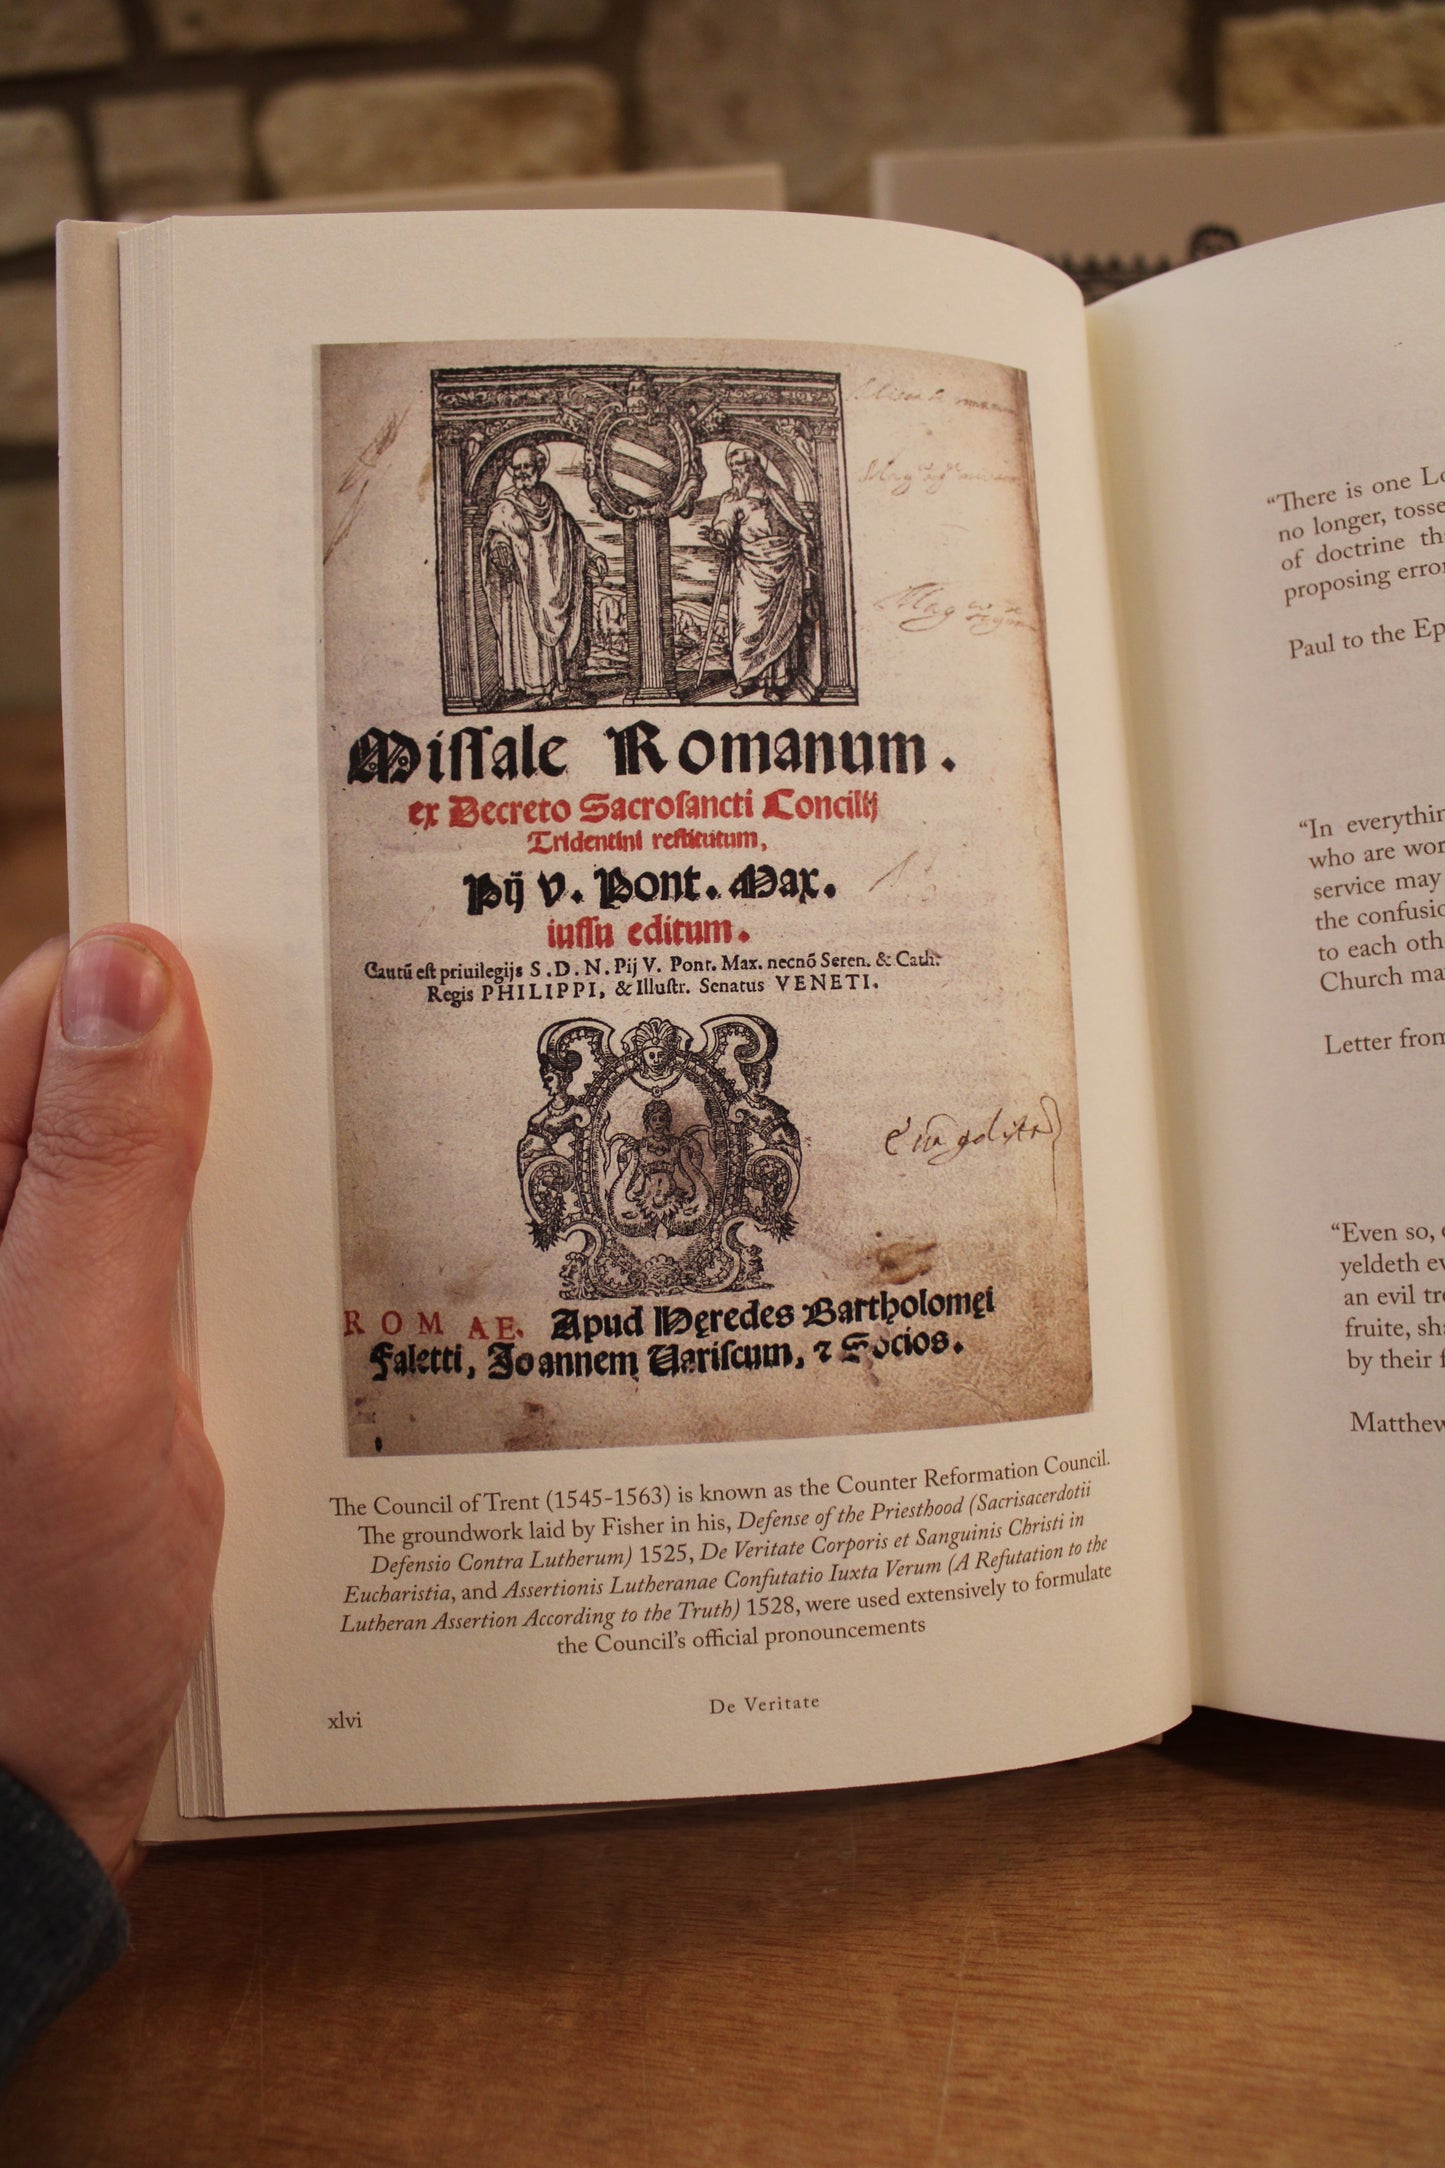 Missale Romanum.
ex Decreto Sacrosancti Concilij
Tridentini restitutum,
Pij V. Pont. Max.
iussu editum.
Cautũ est priuilegijs S. D. N. Pij V. Pont. Max. necnõ Seren. & Cath.
Regis PHILIPPI, & Illustr. Senatus VENETI.
ROMAE. Apud Hęredes Bartholomęi
Faletti, Joannem Uariscum, ⁊ Socios.
The Council of Trent (1545-1563) is known as the Counter Reformation Council.
The groundwork laid by Fisher in his, Defense of the Priesthood (Sacrisacerdotii
Defensio Contra Lutherum) 1525, De Veritate Corporis et Sanguinis Christi in
Eucharistia, and Assertionis Lutheranae Confutatio Iuxta Verum (A Refutation to the
Lutheran Assertion According to the Truth) 1528, were used extensively to formulate
the Council's official pronouncements
xlvi
De Veritate
“There is one
no longer,
of doctrine
proposing
Paul to the
“In
who are
service may
the
to each
Church
Letter
“Even so,
yeldeth
an evil
fruite,
by their
Matthew